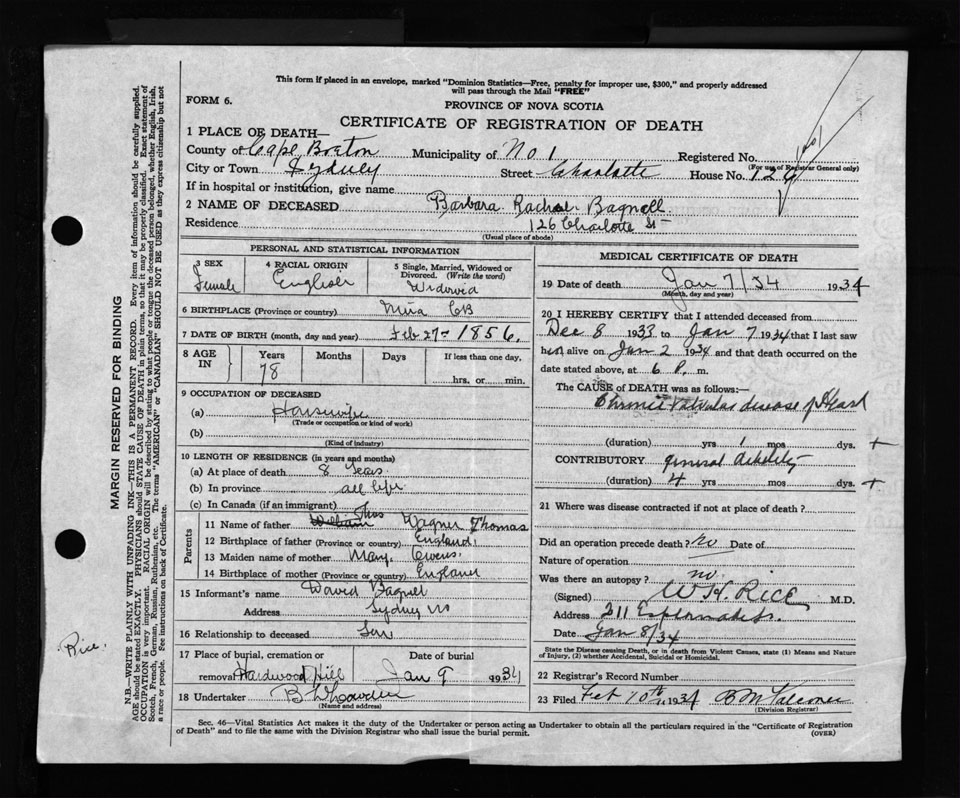 This form if placed in an envelope, marked "Dominion Statistics—Free, penalty for improper use, $300," and properly addressed
will pass through the Mail "FREE"
FORM 6.
PROVINCE OF NOVA SCOTIA
CERTIFICATE OF REGISTRATION OF DEATH
1 PLACE OF DEATH—
County of Cape Breton Municipality of No 1 Registered No.
(For use of Registrar General only)
City or Town Sydney Street Charlotte House No. 126
If in hospital or institution, give name
2 NAME OF DECEASED Barbara Rachael Bagnell
Residence 126 Charlotte St
(Usual place of abode)
PERSONAL AND STATISTICAL INFORMATION
3 SEX Female
4 RACIAL ORIGIN English
5 Single, Married, Widowed or Divorced. (Write the word) Widowed
6 BIRTHPLACE (Province or country) Mira CB
7 DATE OF BIRTH (month, day and year) Feb 27 - 1856.
8 AGE IN Years 78 Months Days If less than one day, hrs. or min.
9 OCCUPATION OF DECEASED
(a) Housewife
(Trade or occupation or kind of work)
(b)
(Kind of industry)
10 LENGTH OF RESIDENCE (in years and months)
(a) At place of death 8 Years
(b) In province all life
(c) In Canada (if an immigrant)
Parents
Thos
11 Name of father William Wagner Thomas
12 Birthplace of father (Province or country) England
13 Maiden name of mother Mary Owens
14 Birthplace of mother (Province or country) England
15 Informant's name David Bagnel
Address Sydney NS
16 Relationship to deceased Son
17 Place of burial, cremation or removal Hardwood Hill
Date of burial Jan 9 1934
18 Undertaker
(Name and address)
MEDICAL CERTIFICATE OF DEATH
19 Date of death Jan 7/34 1934
(Month, day and year)
20 I HEREBY CERTIFY that I attended deceased from
Dec 8 1933 to Jan 7 1934 that I last saw
her alive on Jan 2 1934 and that death occurred on the
date stated above, at 6 P. m.
The CAUSE of DEATH was as follows:—
Chronic Valvular disease of Heart
(duration) yrs 1 mos dys. +
CONTRIBUTORY general debility
(duration) 4 yrs mos dys. +
21 Where was disease contracted if not at place of death?
Did an operation precede death? no Date of
Nature of operation
Was there an autopsy? no
(Signed) W. H. Rice M.D.
Address 211 Esplanade
Date Jan 8/34
State the Disease causing Death, or in death from Violent Causes, state (1) Means and Nature
of Injury, (2) whether Accidental, Suicidal or Homicidal.
22 Registrar's Record Number
23 Filed Feb 10th 1934
(Division Registrar)
Sec. 46—Vital Statistics Act makes it the duty of the Undertaker or person acting as Undertaker to obtain all the particulars required in the "Certificate of Registration
of Death" and to file the same with the Division Registrar who shall issue the burial permit. (OVER)
MARGIN RESERVED FOR BINDING
N.B.—WRITE PLAINLY WITH UNFADING INK—THIS IS A PERMANENT RECORD. Every item of information should be carefully supplied.
AGE should be stated EXACTLY. PHYSICIANS should STATE CAUSE OF DEATH in plain terms, so that it may be properly classified. Exact statement of
OCCUPATION is very important. RACIAL ORIGIN will be described by stating to what people or tongue the deceased person belonged, whether English, Irish,
Scotch, French, German, Russian, Ruthenian, etc. The terms "AMERICAN" or "CANADIAN" SHOULD NOT BE USED as they express citizenship but not
a race or people. See instructions on back of Certificate.
Rice.